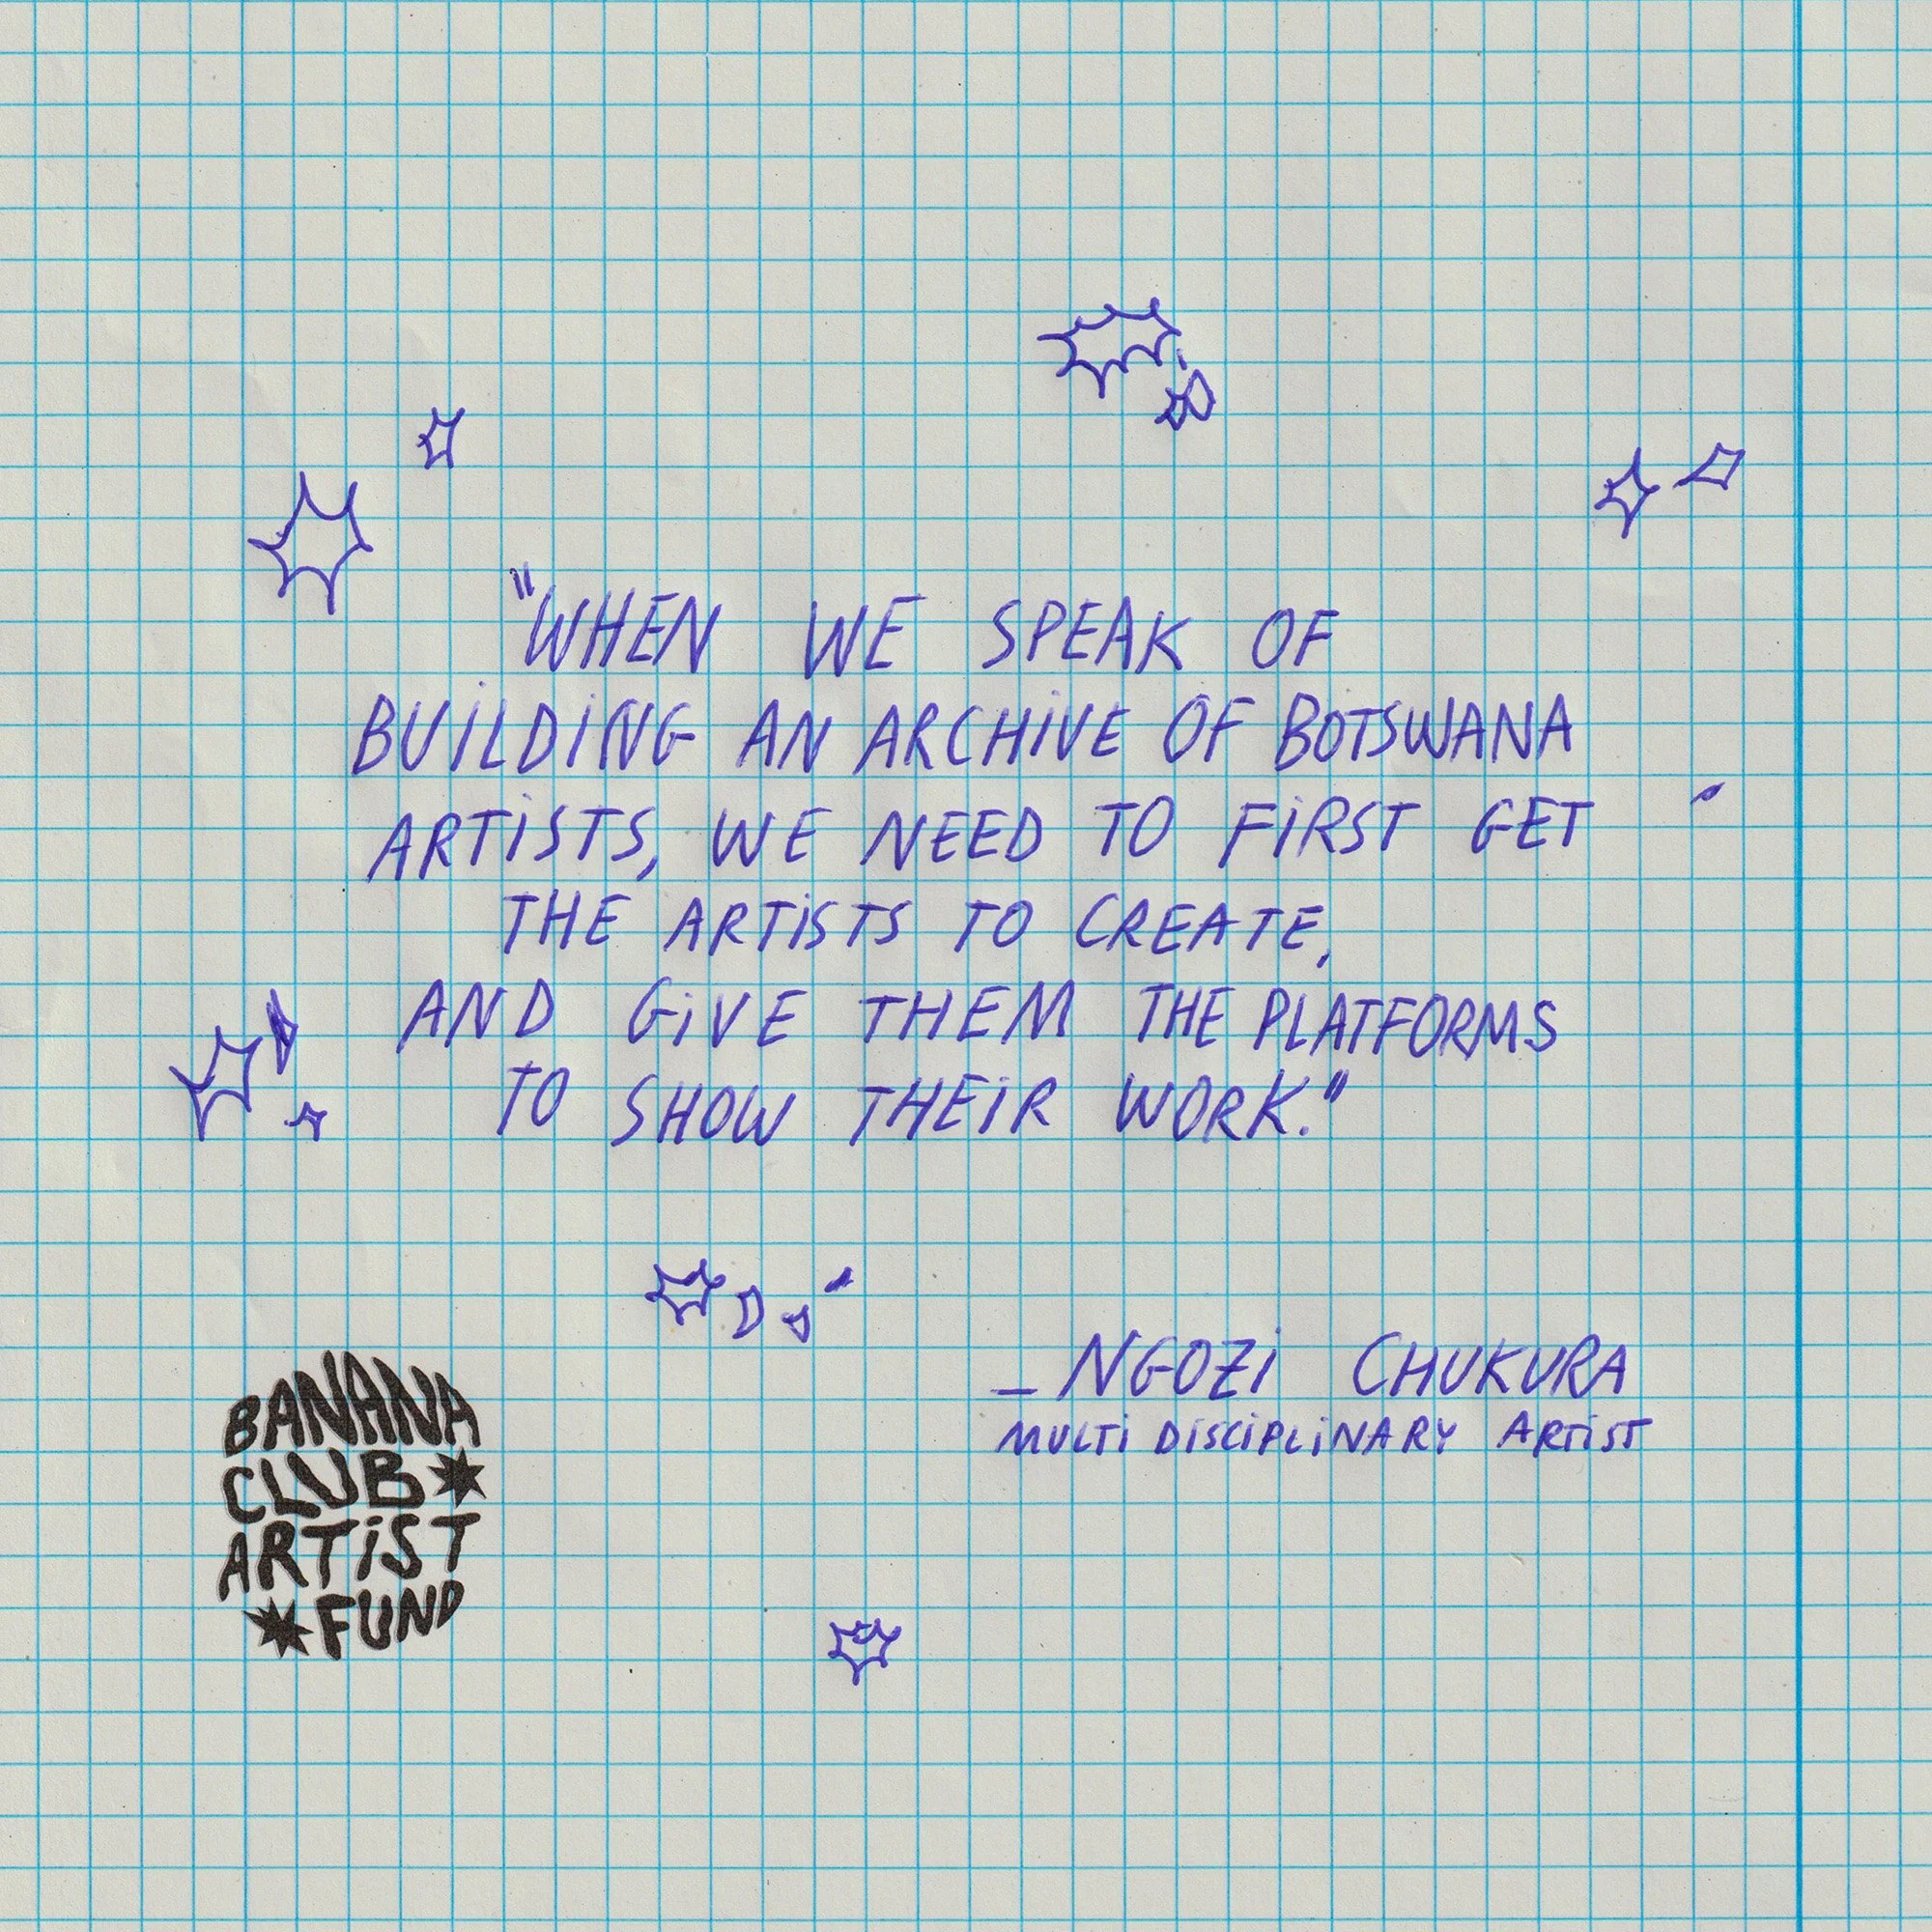 "WHEN WE SPEAK OF
BUiLDiNG AN ARCHiVE OF BOTSWANA
ARTiSTS, WE NEED TO FiRST GET
THE ARTiSTS TO CREATE,
AND GiVE THEM THE PLATFORMS
TO SHOW THEiR WORK."
_ NGOZi CHUKURA
MULTi DiSCiPLiNARY ARTiST
BANANA
CLUB
ARTiST
FUND